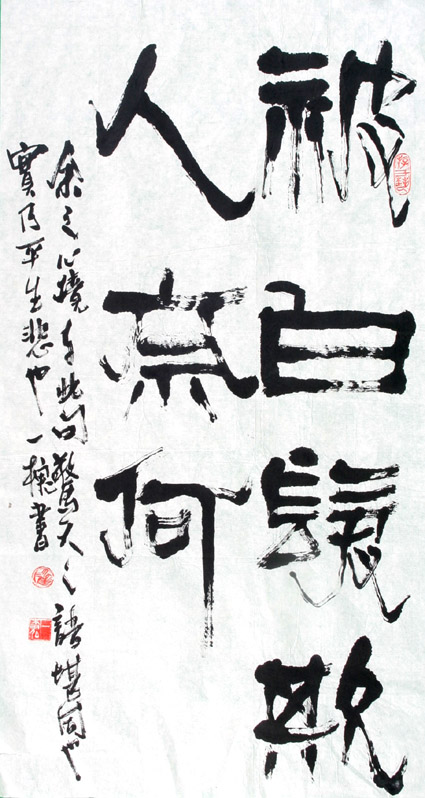 被白髮欺
人奈何
余之心境与此句驚天之語堪同也
實乃平生悲也一書